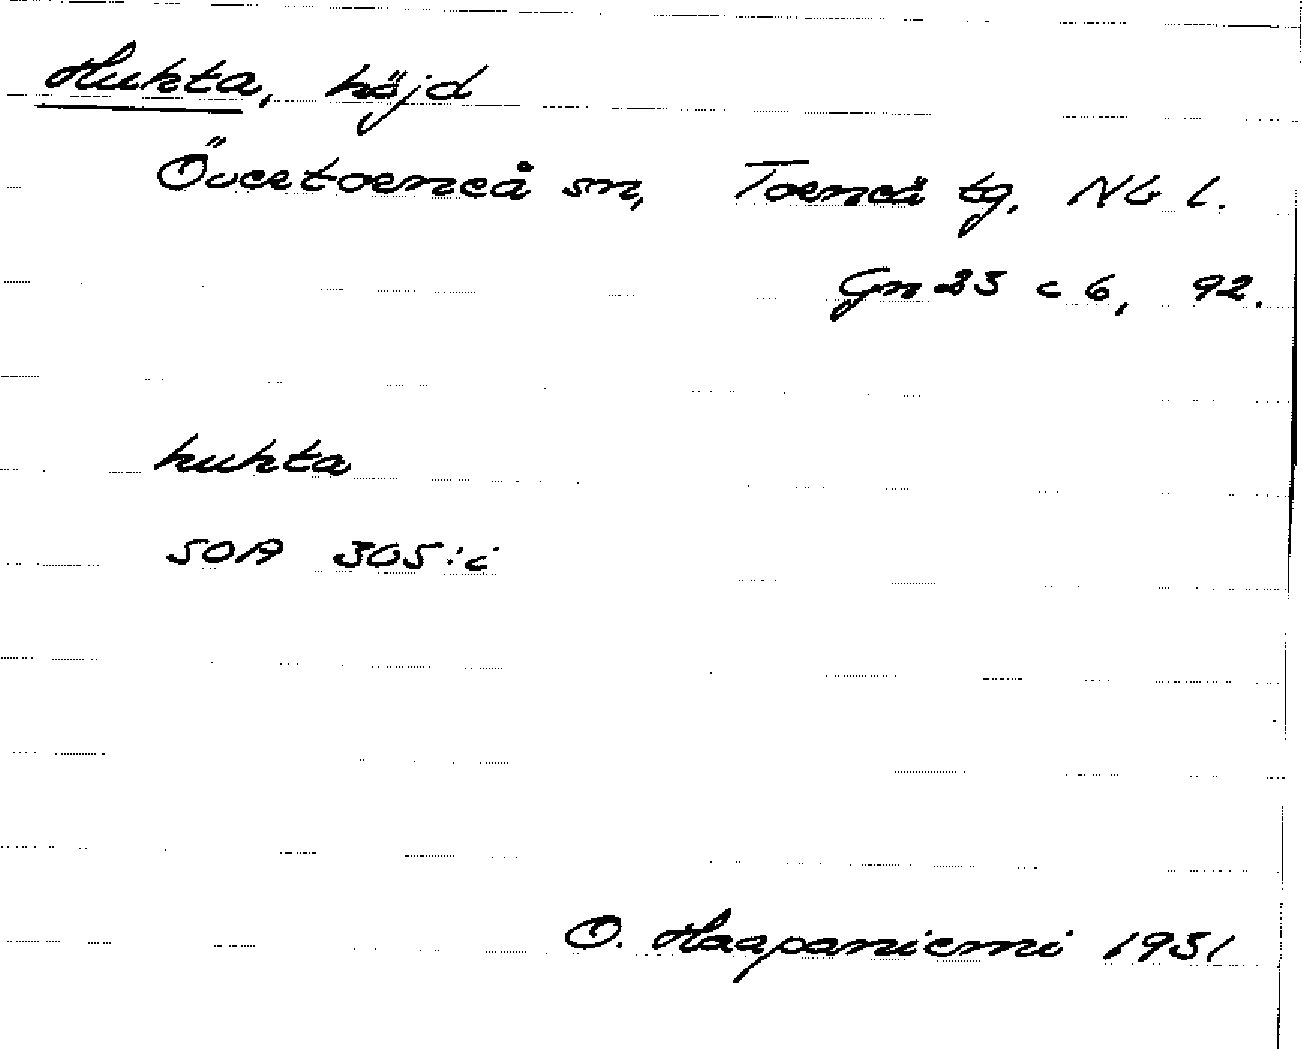 Huhta, höjd
Övertorneå sn, Torneå tg, Nb l.
Gn 23 c 6, 92.
huhta
SOA 305:i
O. Haapaniemi 1931